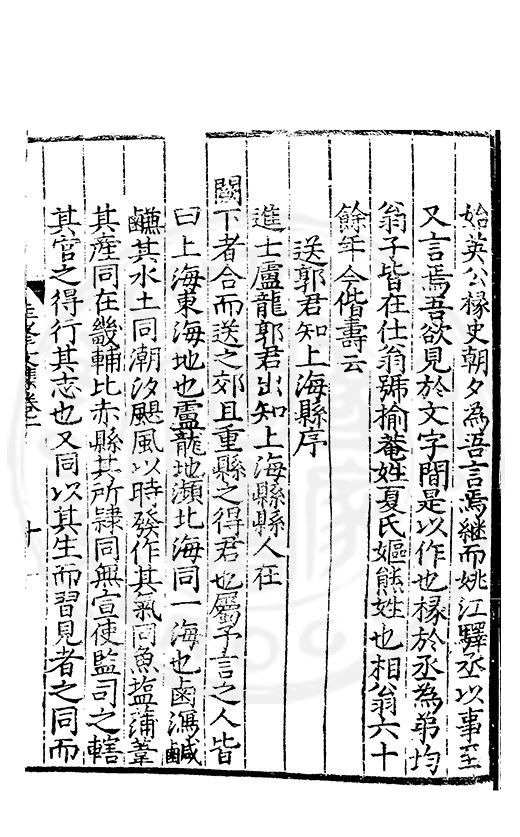 始英公椽史朝夕為吾言焉繼而姚江驛丞以事至
又言焉吾欲見於文字間是以作也椽於丞為弟均
翁子皆在仕翁號榆菴姓夏氏嫗熊姓也相翁六十
餘年今偕壽云
送郭君知上海縣序
進士盧龍郭君出知上海縣縣人在
闕下者合而送之郊且重縣之得君也屬予言之人皆
曰上海東海地也盧龍地瀕北海同一海也鹵瀉鹹
鹻其水土同潮汐颶風以時發作其氣同魚塩蒲葦
其産同在畿輔比赤縣其所隸同無宣使監司之轄
其官之得行其志也又同以其生而習見者之同而